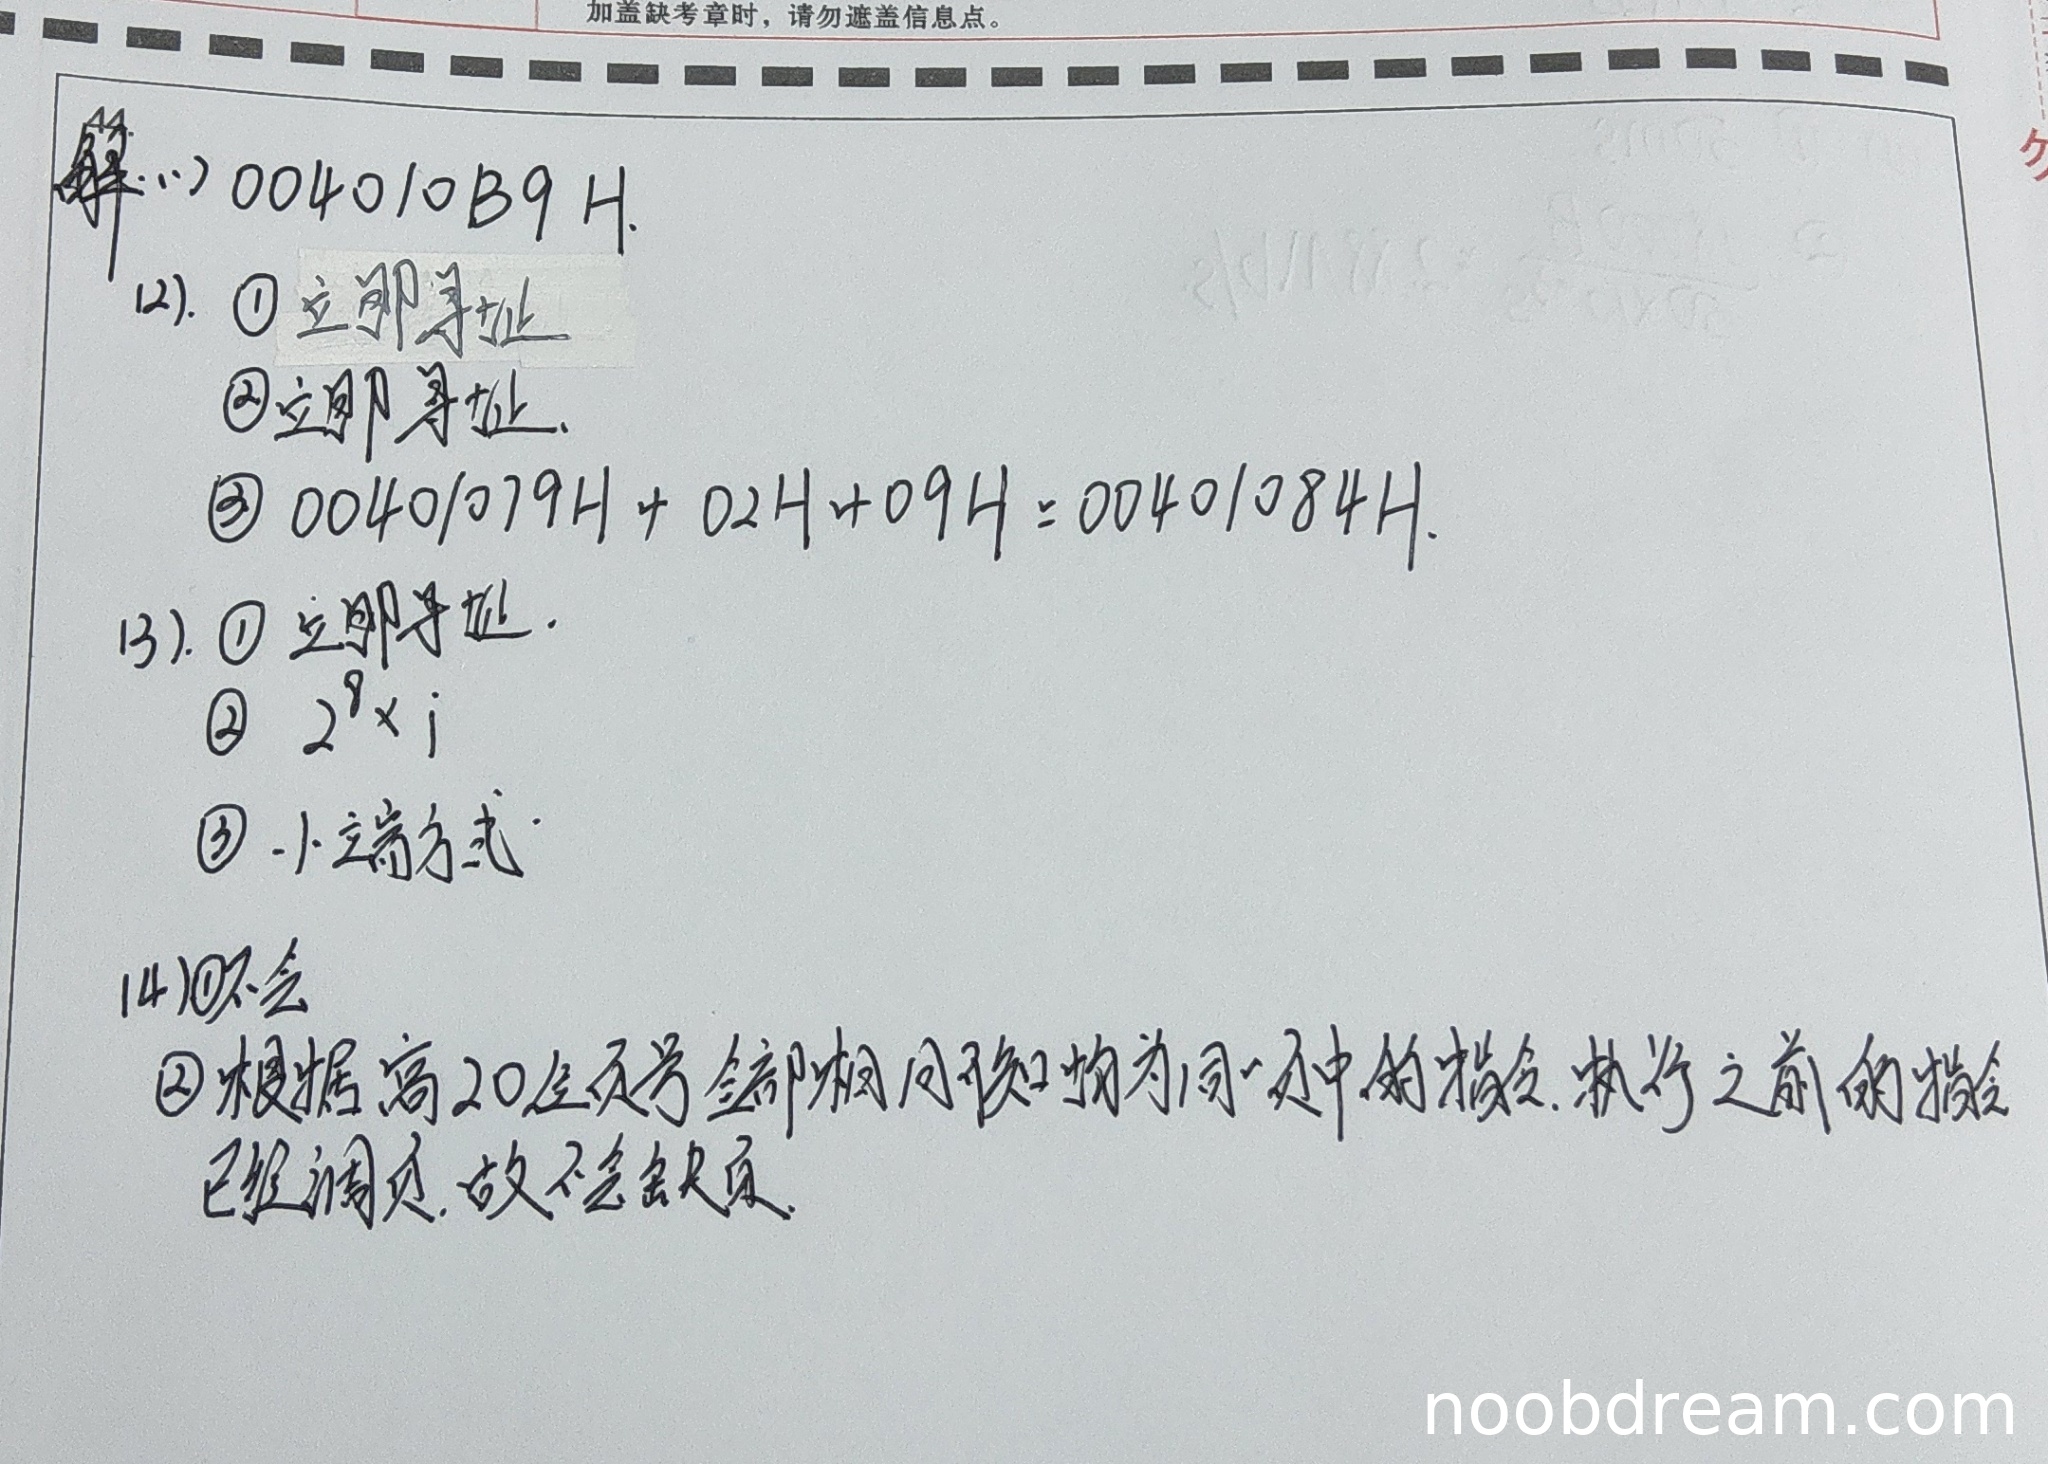 加盖缺考章时，请勿遮盖信息点。
勿
44.
解.(1) 004010B9 H.
(2). ① 立即寻址
② 立即寻址.
③ 00401079H + 02H + 09H = 00401084H.
(3). ① 立即寻址.
② 2⁸ × i
③ 小端方式.
(4) ① 不会
② 根据高20位页号全部相同可知均为同一页中的指令.执行之前的指令
已经调页.故不会缺页.
noobdream.com